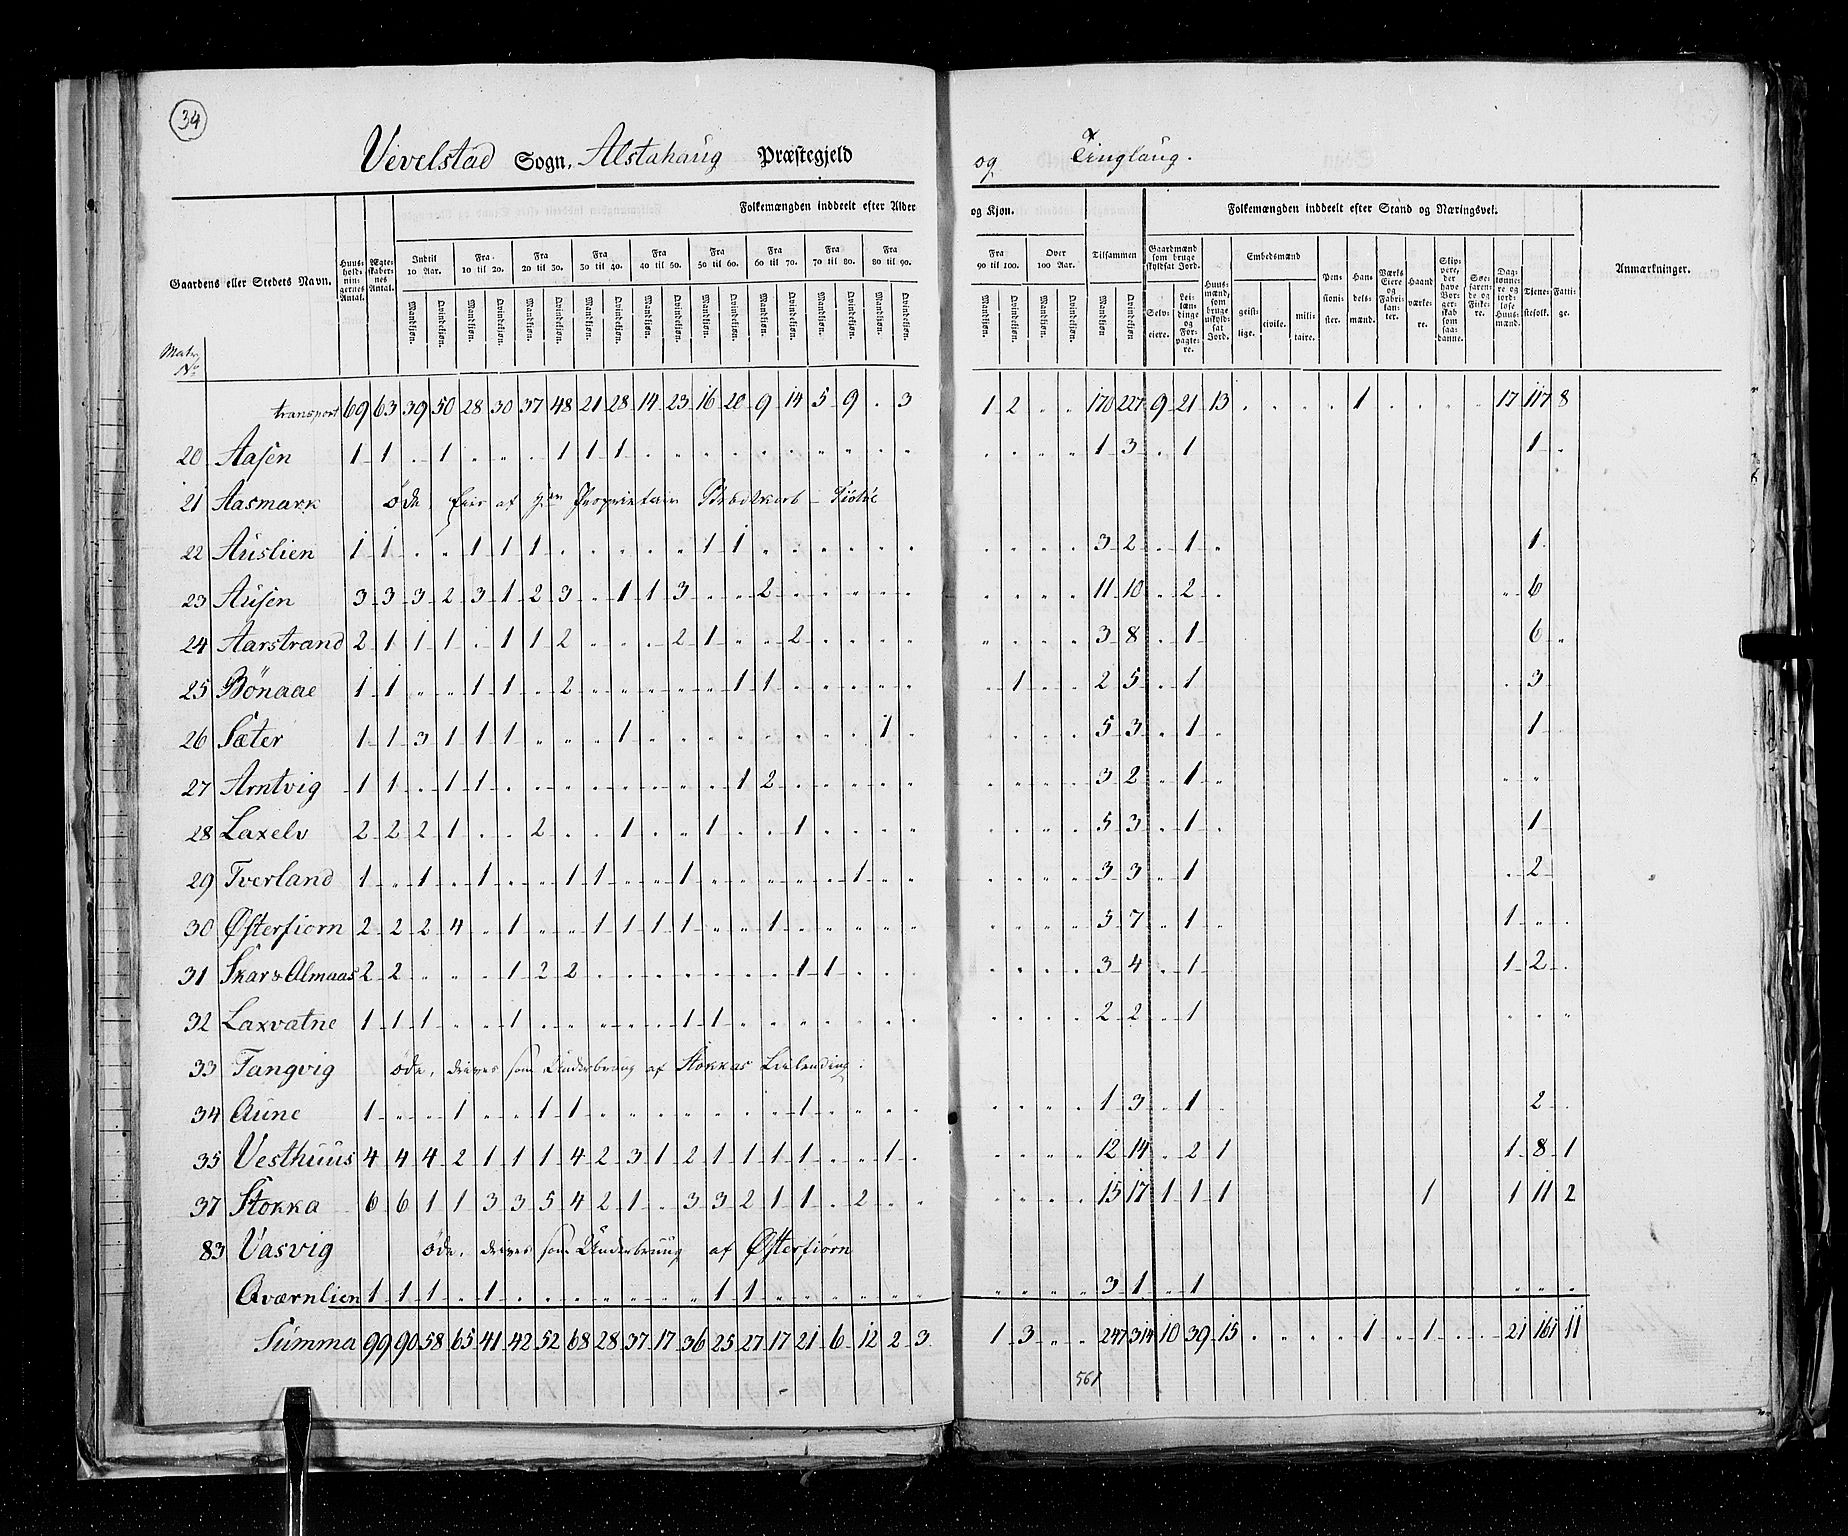 34
Vevelstad Sogn, Alstahaug Præstegjeld og Tinglaug.
Gaardens eller Stedets Navn.
Huusholdningernes Antal.
Ægteskabernes Antal.
Folkemængden inddeelt efter Alder og Kjøn.
Folkemængden inddeelt efter Stand og Næringsvei.
Anmærkninger.
Indtil 10 Aar. Fra 10 til 20. Fra 20 til 30. Fra 30 til 40. Fra 40 til 50. Fra 50 til 60. Fra 60 til 70. Fra 70 til 80. Fra 80 til 90. Fra 90 til 100. Over 100 Aar. Tilsammen
Mandkjøn. Qvindekjøn.
Gaardmænd som bruge skyldsat Jord. Selveiere. Leilændinge og Forpagtere. Huusmænd, som bruge uskyldsat Jord. Embedsmænd geistlige. civile. militaire. Pensionister. Handelsmænd. Værks Eiere og Fabrikanter. Haandværkere. Skippere, der have Borgerskab som saadanne. Søefarende og Fiskere. Daglønnere og jordløse Huusmænd. Tjenestefolk. Fattige.
Matr. No
transport 69 63 39 50 28 30 37 48 21 28 14 23 16 20 9 14 5 9 . 3 1 2 . . 170 227 9 21 13 . . . . 1 . . . . 17 117 8
20 Aasen 1 1 . 1 . . . 1 1 1 . . . . . . . . . . . . . . 1 3 . 1 1
21 Aasmark öde, Eies af Proprietair
22 Auslien 1 1 . . 1 1 1 . . . . . 1 1 . . . . . . . . . . 3 2 . 1 . 1
23 Ausen 3 3 3 2 3 1 2 3 . 1 1 3 . . 2 . . . . . . . . . 11 10 . 2 . . 6
24 Aarstrand 2 1 1 1 . 1 1 2 . . . 2 1 . . 2 . . . . . . . . 3 8 . 1 6 .
25 Bönaae 1 1 . . 1 1 . 2 . . . . . 1 1 . . . . . . 1 . . 2 5 . 1 . 3
26 Sæter 1 1 3 1 1 1 . . . 1 . . . . . . . . 1 . . . . . 5 3 . 1 . 1
27 Arntvig 1 1 . 1 1 . . . . . . . . 1 2 . . . . . . . . . 3 2 . 1 . . .
28 Laxelv 2 2 2 1 . . 2 . . 1 . . 1 . . 1 . . . . . . . . 5 3 . 1 . 1
29 Tverland 1 . 1 . 1 . . 1 1 . . 1 . . . . . 1 . . . . . . 3 3 . 1 . 2
30 Østerfiorn 2 2 2 4 . 1 . . 1 1 1 1 . . 1 . . . . . . . . . 3 7 . 1 . 1 . .
31 Skar & Almaas 2 2 . . . 1 2 2 . . . . . . . 1 1 . . . . . . . 3 4 . 1 1 2 .
32 Laxvatne 1 1 1 . . 1 . . . . . 1 1 . . . . . . . . . . . 2 2 . 1 . . .
33 Tangvig öde, drives som Underbrug af Stokkas Leilending.
34 Aune 1 . . 1 . . 1 1 . . . . . . . 1 . . . . . . . . 1 3 . 1 . 2 .
35 Vesthuus 4 4 4 2 1 1 1 4 2 3 1 2 1 1 1 1 . . 1 . . . . . 12 14 . 2 1 1 8 1
37 Stokka 6 6 1 1 3 3 5 4 2 1 . 3 3 2 1 1 . 2 . . . . . . 15 17 1 1 1 1 1 11 2
83 Vasvig öde, drives som Underbruug af Østerfiörn
Qværnlien 1 1 1 . 1 . . . . . . . 1 1 . . . . . . . . . . 3 1 . 1 . . .
Summa 99 90 58 65 41 42 52 68 28 37 17 36 25 27 17 21 6 12 2 3 1 3 . . 247 314 10 39 15 . . . . 1 . 1 . . 21 161 11
561